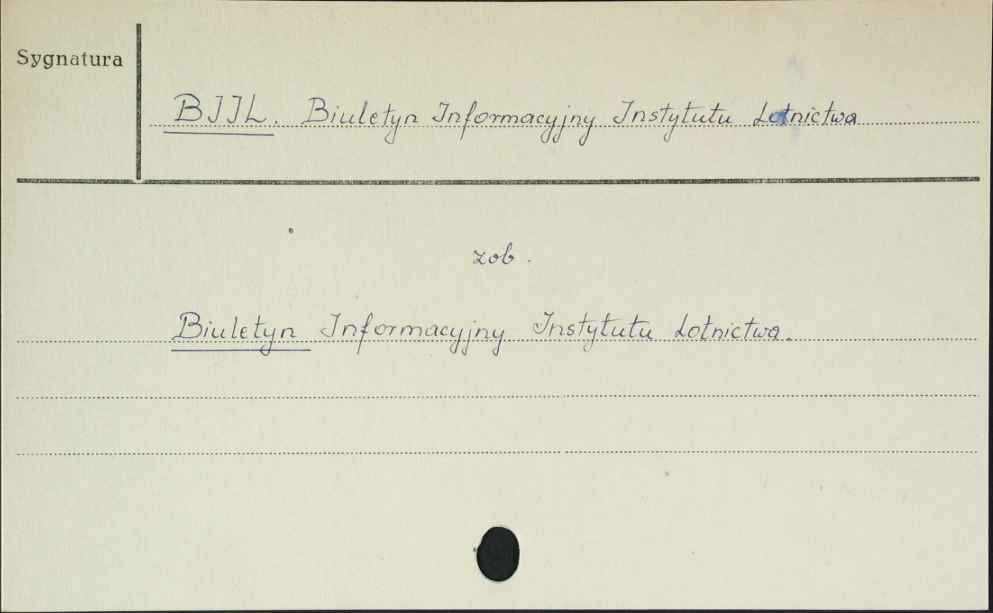 Sygnatura
BIIL. Biuletyn Informacyjny Instytutu Lotnictwa
zob.
Biuletyn Informacyjny Instytutu Lotnictwa.